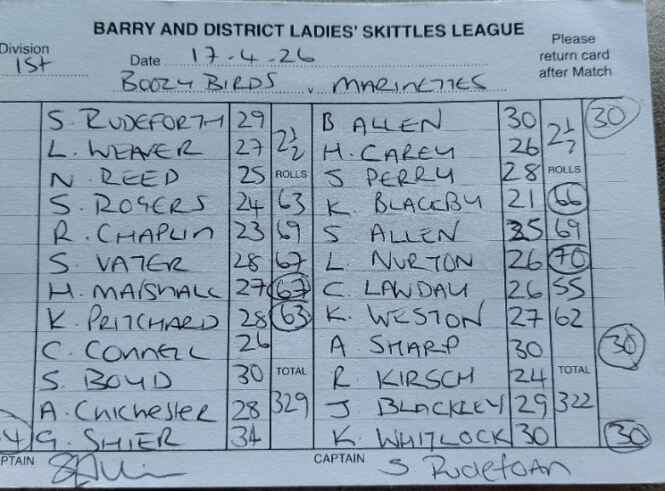 BARRY AND DISTRICT LADIES' SKITTLES LEAGUE
Division 1st Date 17.4.26 Please return card after Match
BOOZY BIRDS v MARINETTES
S. RUDEFORTH 29 2½ B ALLEN 30 2½ 30
L. WEAVER 27 H. CAREY 26
N. REED 25 ROLLS S PERRY 28 ROLLS
S. ROGERS 24 63 K. BLACKBY 21 66
R. CHAPLIN 23 69 S ALLEN 25 69
S. VATER 28 67 L. NURTON 26 70
H. MARSHALL 27 67 C. LANDAU 26 55
K. PRITCHARD 28 63 K. WESTON 27 62
C. CONNELL 26 A SHARP 30 30
S. BOYD 30 TOTAL R. KIRSCH 24 TOTAL
A. Chichester 28 329 J BLACKLEY 29 322
G. SHIER 34 K. WHITLOCK 30 30
CAPTAIN S Rudefoan